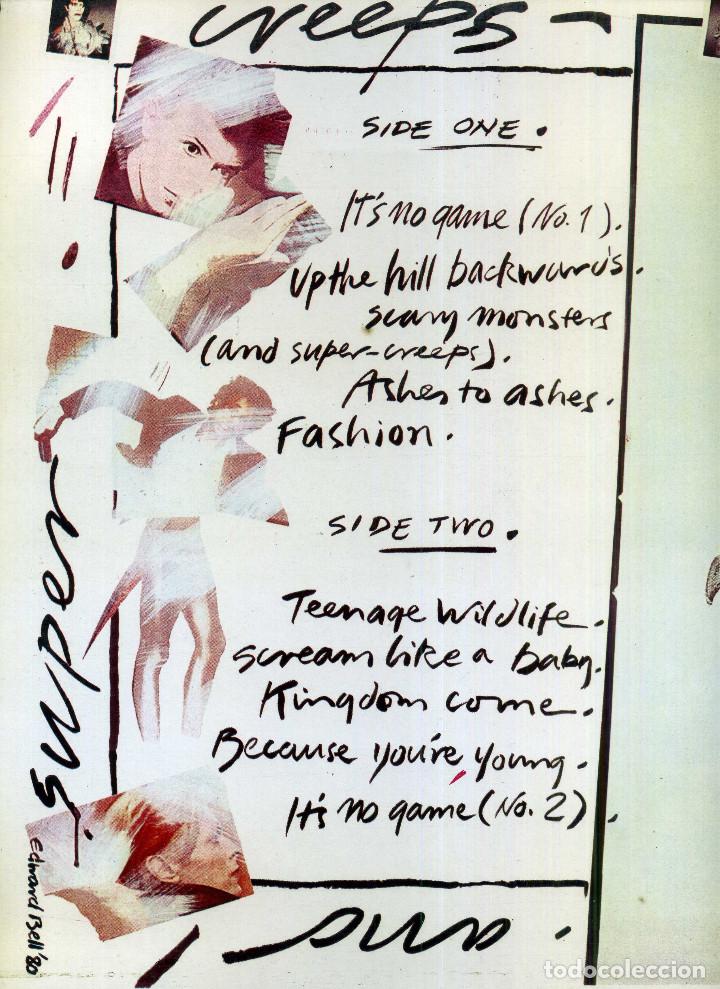 creeps
SIDE ONE.
It's no game (No. 1).
Up the hill backwards.
scary monsters
(and super-creeps).
Ashes to ashes.
Fashion.
SIDE TWO.
Teenage Wildlife.
scream like a Baby.
Kingdom come.
Because you're young.
It's no game (No. 2).
super
Edward Bell '80
todocoleccion